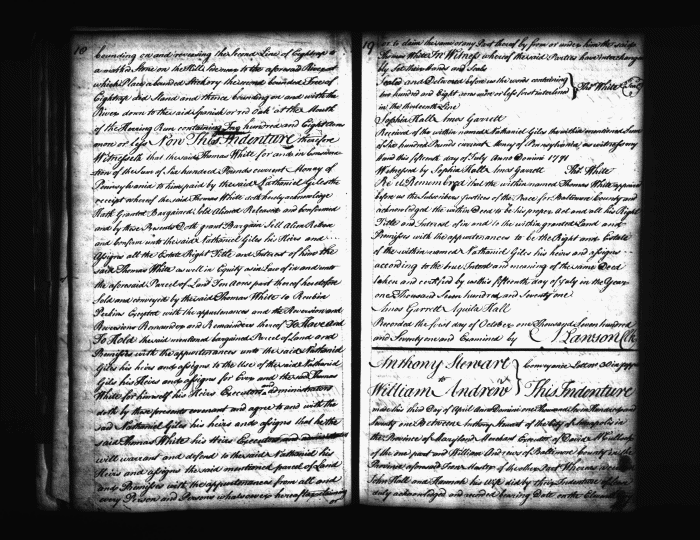 18
bounding on and reversing the Second Line of Eightrop to
a marked Stone on the Hills
which Place a bounded Hickory the second bounded Tree of
Eightrop did Stand and thence bounding on and with the
River down to the said Spanish or red Oak at the Mouth
of the Herring Run containing Two hundred and Eight Acres
more or less Now This Indenture therefore
Witnesseth that the said Thomas White for and in Considera
tion of the Sum of Six hundred Pounds current Money of
Pennsylvania to him paid by the said Nathaniel Giles the
receipt whereof the said Thomas White doth hereby acknowledge
Hath Granted Bargained Sold Aliened Released and confirmed
and by these Presents Doth grant Bargain Sell Alien Release
and confirm unto the said Nathaniel Giles his Heirs and
Assigns all the Estate Right Title and Interest of him the
said Thomas White as well in Equity as in Law of in and unto
the aforesaid Parcel of Land Ten Acres part thereof heretofore
Sold and conveyed by the said Thomas White to Reubin
Perkins Excepted with the appurtenances and the Reversion and
Reversions Remainder and Remainders thereof To Have and
To Hold the said mentioned bargained Parcel of Land and
Premisses with the appurtenances unto the said Nathaniel
Giles his heirs and assigns to the Use of the said Nathaniel
Giles his Heirs and assigns for Ever and the said Thomas
White for himself his Heirs Executors and administrators
doth by these presents covenant and agree to and with the
said Nathaniel Giles his heirs and assigns that he the
said Thomas White his Heirs Executors and administrators
will warrant and defend to the said Nathaniel his
Heirs and assigns the said mentioned parcel of Land
and Premisses with the appurtenances from all and
every Person and Persons whatsoever hereafter claiming
19
or to claim the same or any Part thereof by from or under him the said
Thomas White In Witness whereof the said Parties have interchange
ably set their Hands and Seals
Sealed and Delivered before us the words containing
two hundred and Eight acres more or less first interlined
in the thirteenth Line
Thos White (Seal)
Sophia Hall Amos Garrett
Received of the within named Nathaniel Giles the within mentioned Sum
of Six hundred Pounds current Money of Pennsylvania as witness my
hand this fifteenth day of July Anno Domini 1771
Witnessed by Sophia Hall Amos Garrett Thos White
Be it Remembred that the within named Thomas White appeared
before us the Subscribers Justices of the Peace for Baltimore County and
acknowledged the within Deed to be his proper Act and all his Right
Title and Interest of in and to the within granted Land and
Premisses with the appurtenances to be the Right and Estate
of the within named Nathaniel Giles his heirs and assigns
according to the true Intent and meaning of the same Deed
taken and certified by us this fifteenth day of July in the Year
one Thousand Seven hundred and Seventy one
Amos Garrett Aquila Hall
Recorded the first day of October one Thousand Seven hundred
and Seventy one and Examined by J Lawson Clk
Anthony Stewart
to
William Andrew
This Indenture
made this Third Day of April Anno Domini one Thousand Seven Hundred and
Seventy one Between Anthony Stewart of the City of Annapolis in
the Province of Maryland Merchant Executor of David McCulloch
of the one part and William Andrew of Baltimore County in the
Province aforesaid of the other Part Whereas
John Hall and Hannah his Wife did by their Indenture of Lease
duly acknowledged and recorded bearing Date on the Eleventh